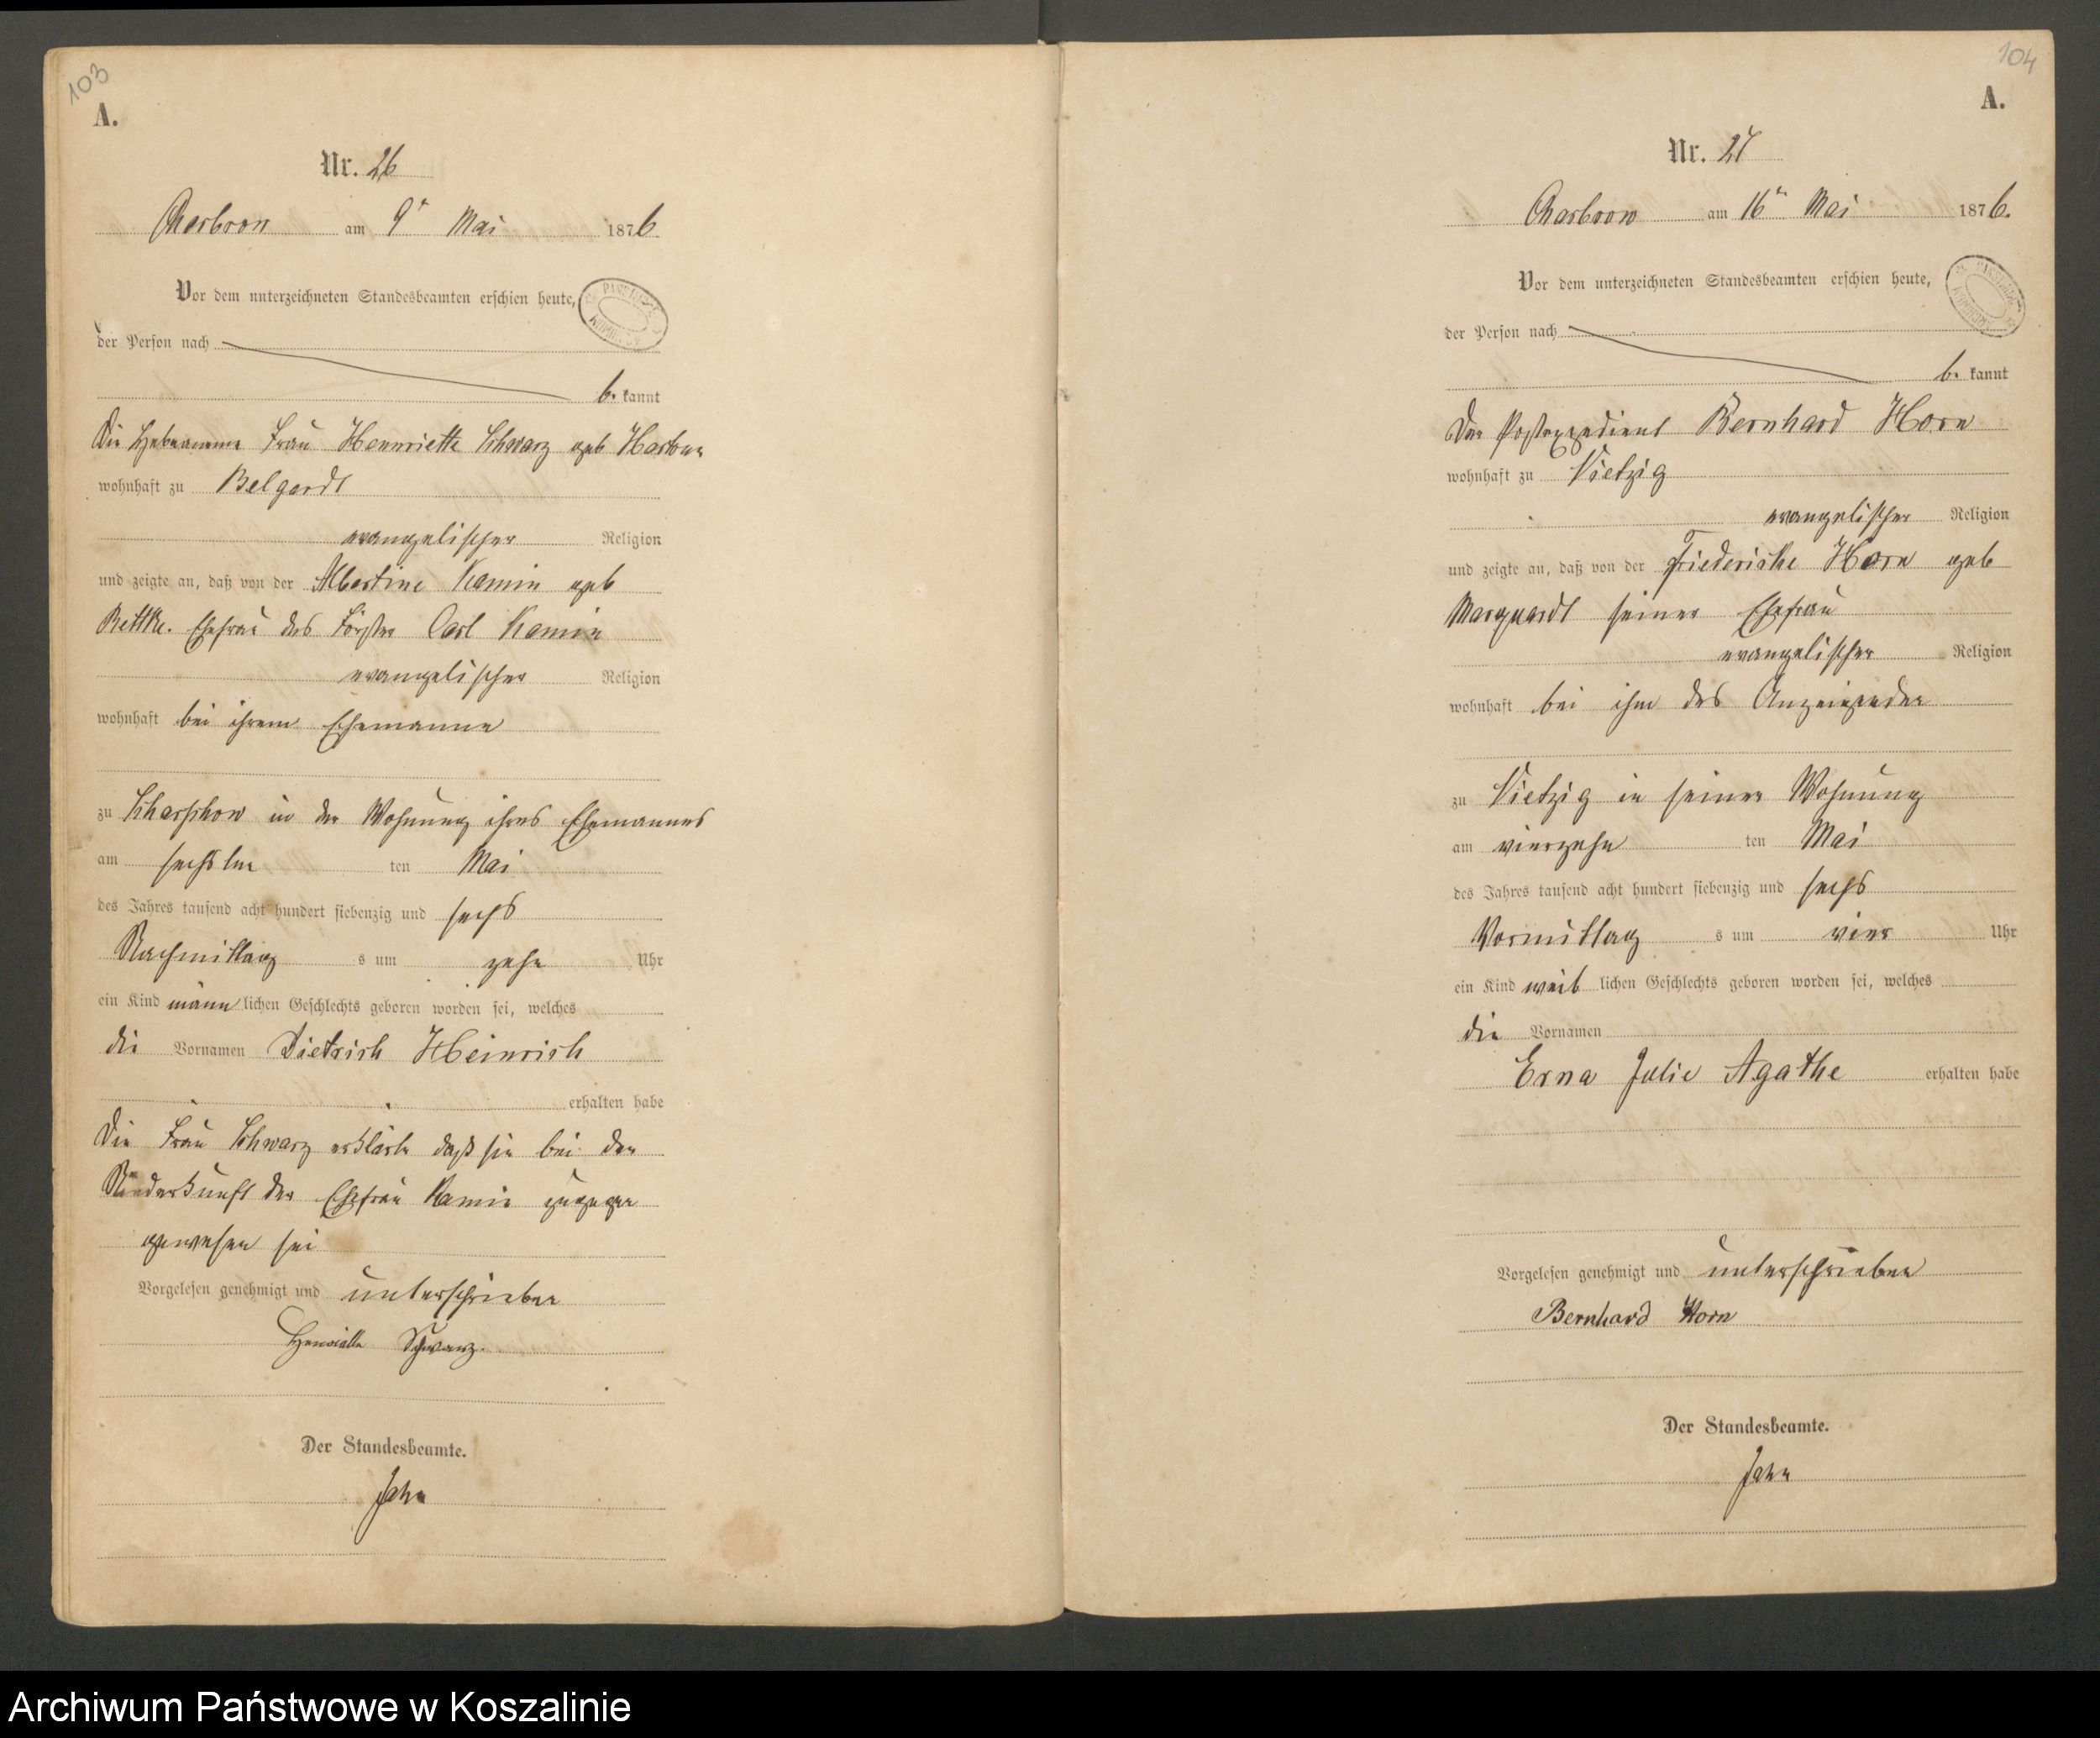 103
A.
Nr. 26
Charbrow am 9ᵗ Mai 1876
Vor dem unterzeichneten Standesbeamten erschien heute,
der Person nach
be kannt
Die Hebeamme Frau Hennriette Schwarz geb
wohnhaft zu Belgardt
evangelischer Religion
und zeigte an, daß von der Albertine Kamin geb
Rettke. Ehefrau des Förster Carl Kamin
evangelischer Religion
wohnhaft bei ihrem Ehemanne
zu Scharschow in der Wohnung ihres Ehemannes
am sechsten ten Mai
des Jahres tausend acht hundert siebenzig und sechs
Nachmittag s um zehn Uhr
ein Kind männ lichen Geschlechts geboren worden sei, welches
die Vornamen Dietrich Heinrich
erhalten habe
Die Frau Schwarz erklärte daß sie bei der
Niederkunft der Ehefrau Kamin zugegen
gewesen sei
Vorgelesen genehmigt und unterschrieben
Henriette Schwarz.
Der Standesbeamte.
Jahn
104
A.
Nr. 27
Charbrow am 16ᵗ Mai 1876.
Vor dem unterzeichneten Standesbeamten erschien heute,
der Person nach
be kannt
Der Postexpedient Bernhard Horn
wohnhaft zu Vietzig
evangelischer Religion
und zeigte an, daß von der Friedericke Horn geb
Marquardt seiner Ehefrau
evangelischer Religion
wohnhaft bei ihm des Anzeigender
zu Vietzig in seiner Wohnung
am vierzehn ten Mai
des Jahres tausend acht hundert siebenzig und sechs
Vormittag s um vier Uhr
ein Kind weib lichen Geschlechts geboren worden sei, welches
die Vornamen
Erna Julie Agathe erhalten habe
Vorgelesen genehmigt und unterschrieben
Bernhard Horn
Der Standesbeamte.
Jahn
Archiwum Państwowe w Koszalinie